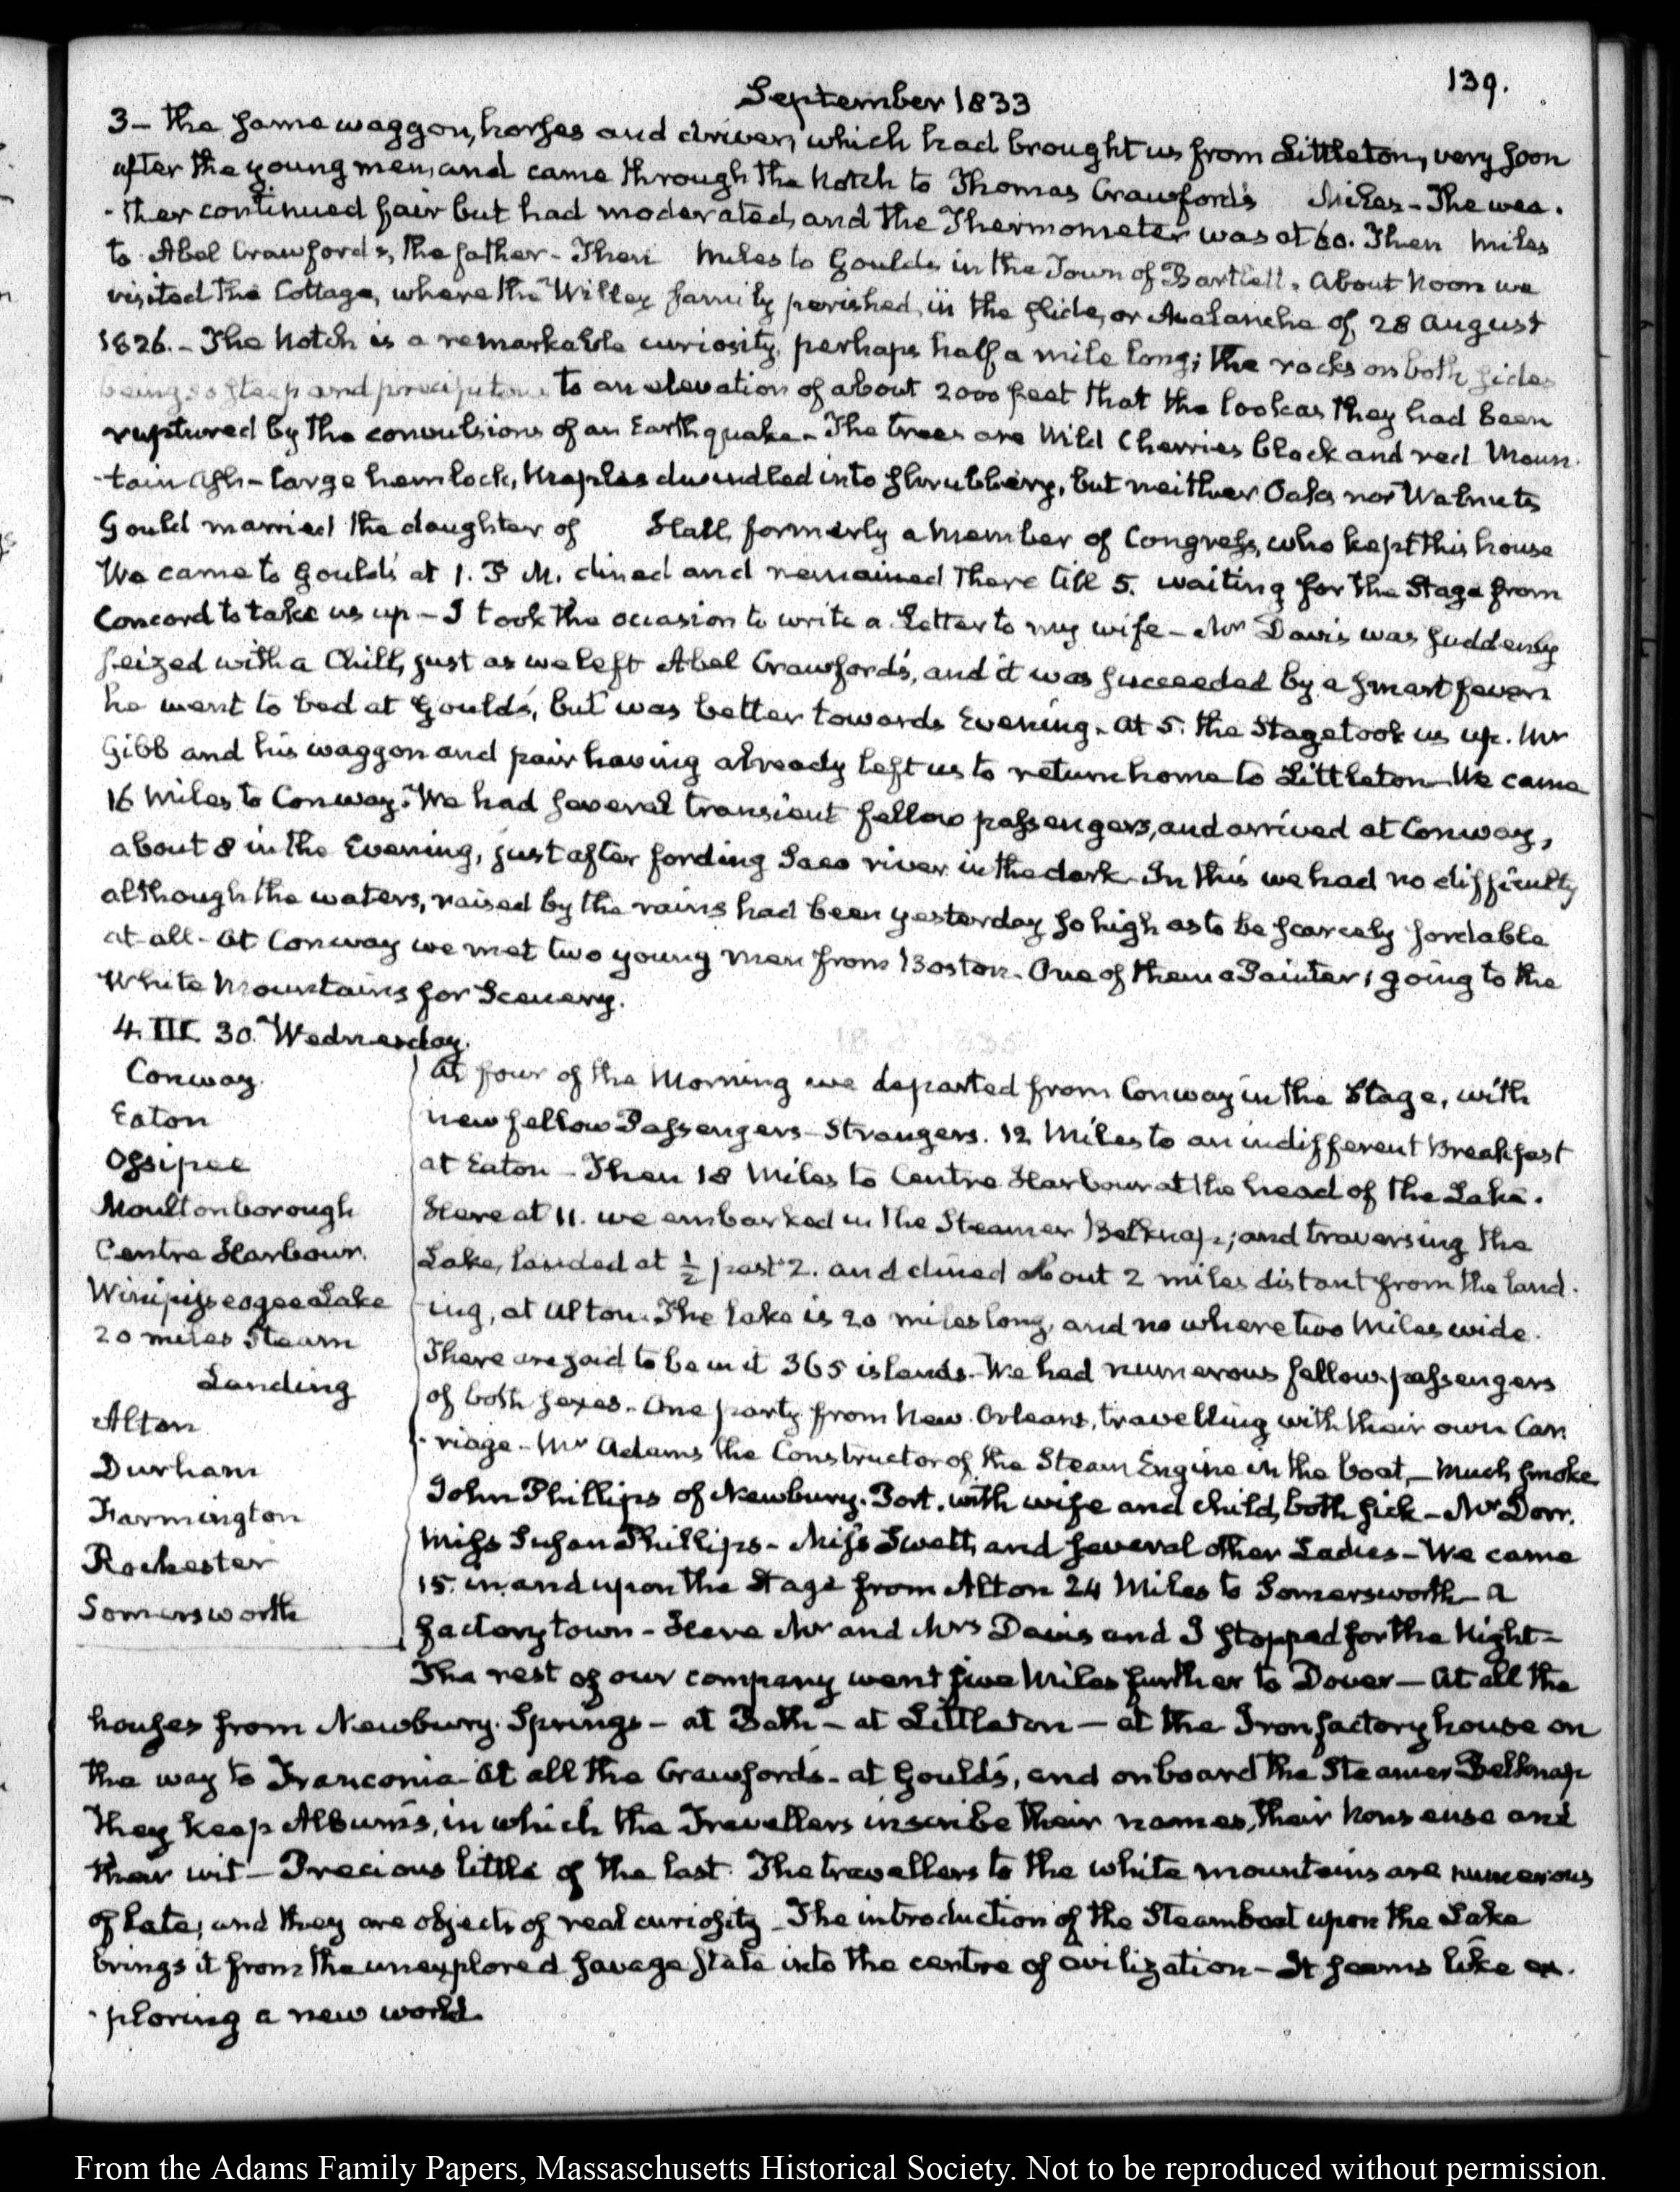 139.
September 1833
3— the same waggon, horses and driver, which had brought us from Littleton, very soon
after the young men, and came through the Notch to Thomas Crawford's Miles — The wea-
-ther continued fair but had moderated, and the Thermometer was at 60. Then Miles
to Abel Crawford's, the father — Then Miles to Goulds in the Town of Bartlett. About Noon we
visited the Cottage, where the Willey family perished, in the slide, or Avalanche of 28 August
1826. — The Notch is a remarkable curiosity, perhaps half a mile long; the rocks on both sides
being so steep and precipitous to an elevation of about 2000 feet that the look as they had been
ruptured by the convulsions of an Earthquake — The trees are Wild Cherries black and red Moun-
-tain Ash — large hemlock, Maples dwindled into shrubbery, but neither Oaks nor Walnuts
Gould married the daughter of Hall, formerly a member of Congress, who kept this house
We came to Gould's at 1. P M. dined and remained there till 5. waiting for the Stage from
Concord to take us up — I took the occasion to write a Letter to my wife — Mr Davis was suddenly
seized with a Chill, just as we left Abel Crawford's, and it was succeeded by a smart fever
he went to bed at Gould's, but was better towards Evening. At 5. the Stage took us up. Mr
Gibb and his waggon and pair having already left us to return home to Littleton — We came
16 Miles to Conway. We had several transient fellow passengers, and arrived at Conway,
about 8 in the Evening, just after fording Saco river in the dark — In this we had no difficulty
although the waters, raised by the rains had been yesterday so high as to be scarcely fordable
at all — At Conway we met two young men from Boston. One of them a Painter; going to the
White Mountains for Scenery.
4. III. 30. Wednesday.
Conway.
Eaton
Ossipee
Moultonborough
Centre Harbour.
Winipisseogee Lake
20 miles Steam
Landing
Alton
Durham
Farmington
Rochester
Somersworth
At four of the Morning we departed from Conway in the Stage, with
new fellow Passengers — Strangers. 12 Miles to an indifferent Breakfast
at Eaton — Then 18 Miles to Centre Harbour at the head of the Lake.
Here at 11. we embarked in the Steamer Belknap; and traversing the
Lake, landed at ½ past 2. and dined about 2 miles distant from the land-
-ing, at Alton. The lake is 20 miles long, and no where two Miles wide.
There are said to be in it 365 islands. We had numerous fellow-passengers
of both sexes. One party from New-Orleans, travelling with their own Car-
-riage — Mr Adams the Constructor of the Steam Engine in the boat, — much smoke
John Phillips of Newbury-Port, with wife and child, both sick — Mr Dorr.
Miss Susan Phillips — Miss Swett, and several other Ladies — We came
15. in and upon the Stage from Alton 24 Miles to Somersworth — a
factory town — Here Mr and Mrs Davis and I stopped for the Night —
The rest of our company went five Miles further to Dover — At all the
houses from Newbury-Springs — at Bath — at Littleton — at the Iron factory house on
the way to Franconia — At all the Crawford's — at Gould's, and on board the Steamer Belknap
They keep Albums, in which the Travellers inscribe their names, their nonsense and
their wit — Precious little of the last. The travellers to the white mountains are numerous
of late; and they are objects of real curiosity — The introduction of the Steamboat upon the Lake
brings it from the unexplored savage state into the centre of civilization — It seems like ex-
-ploring a new world.
From the Adams Family Papers, Massaschusetts Historical Society. Not to be reproduced without permission.